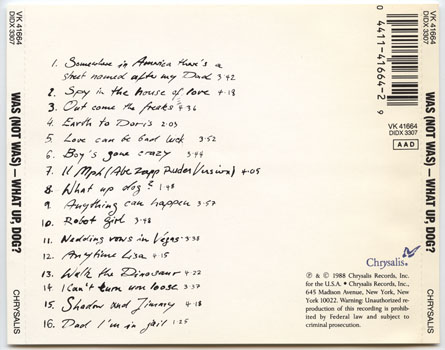 VK 41664
DIDX 3307
WAS (NOT WAS) — WHAT UP, DOG?
CHRYSALIS
1. Somewhere in America there's a
street named after my Dad 3:42
2. Spy in the house of love 4:18
3. Out come the freaks 4:36
4. Earth to Doris 2:03
5. Love can be bad luck 3:52
6. Boy's gone crazy 3:44
7. 11 Mph (Abe Zapp Ruder Version) 4:05
8. What up dog? 1:48
9. Anything can happen 3:57
10. Robot girl 3:48
11. Wedding vows in Vegas 3:38
12. Anytime Lisa 4:15
13. Walk the Dinosaur 4:22
14. I can't turn you loose 3:37
15. Shadow and Jimmy 4:18
16. Dad I'm in jail 1:25
0 4411-41664-2 9
VK 41664
DIDX 3307
AAD
Chrysalis
℗ & © 1988 Chrysalis Records, Inc.
for the U.S.A. • Chrysalis Records, Inc.,
645 Madison Avenue, New York, New
York 10022. Warning: Unauthorized re-
production of this recording is prohibit-
ed by Federal law and subject to
criminal prosecution.
VK 41664
DIDX 3307
WAS (NOT WAS) — WHAT UP, DOG?
CHRYSALIS